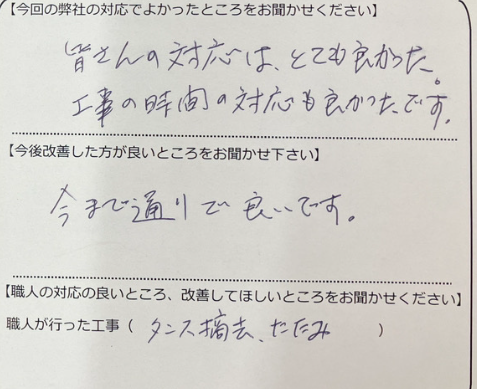 【今回の弊社の対応でよかったところをお聞かせください】
皆さんの対応は、とても良かった。
工事の時間の対応も良かったです。
【今後改善した方が良いところをお聞かせ下さい】
今まで通りで良いです。
【職人の対応の良いところ、改善してほしいところをお聞かせください】
職人が行った工事（ タンス摘去、たたみ ）